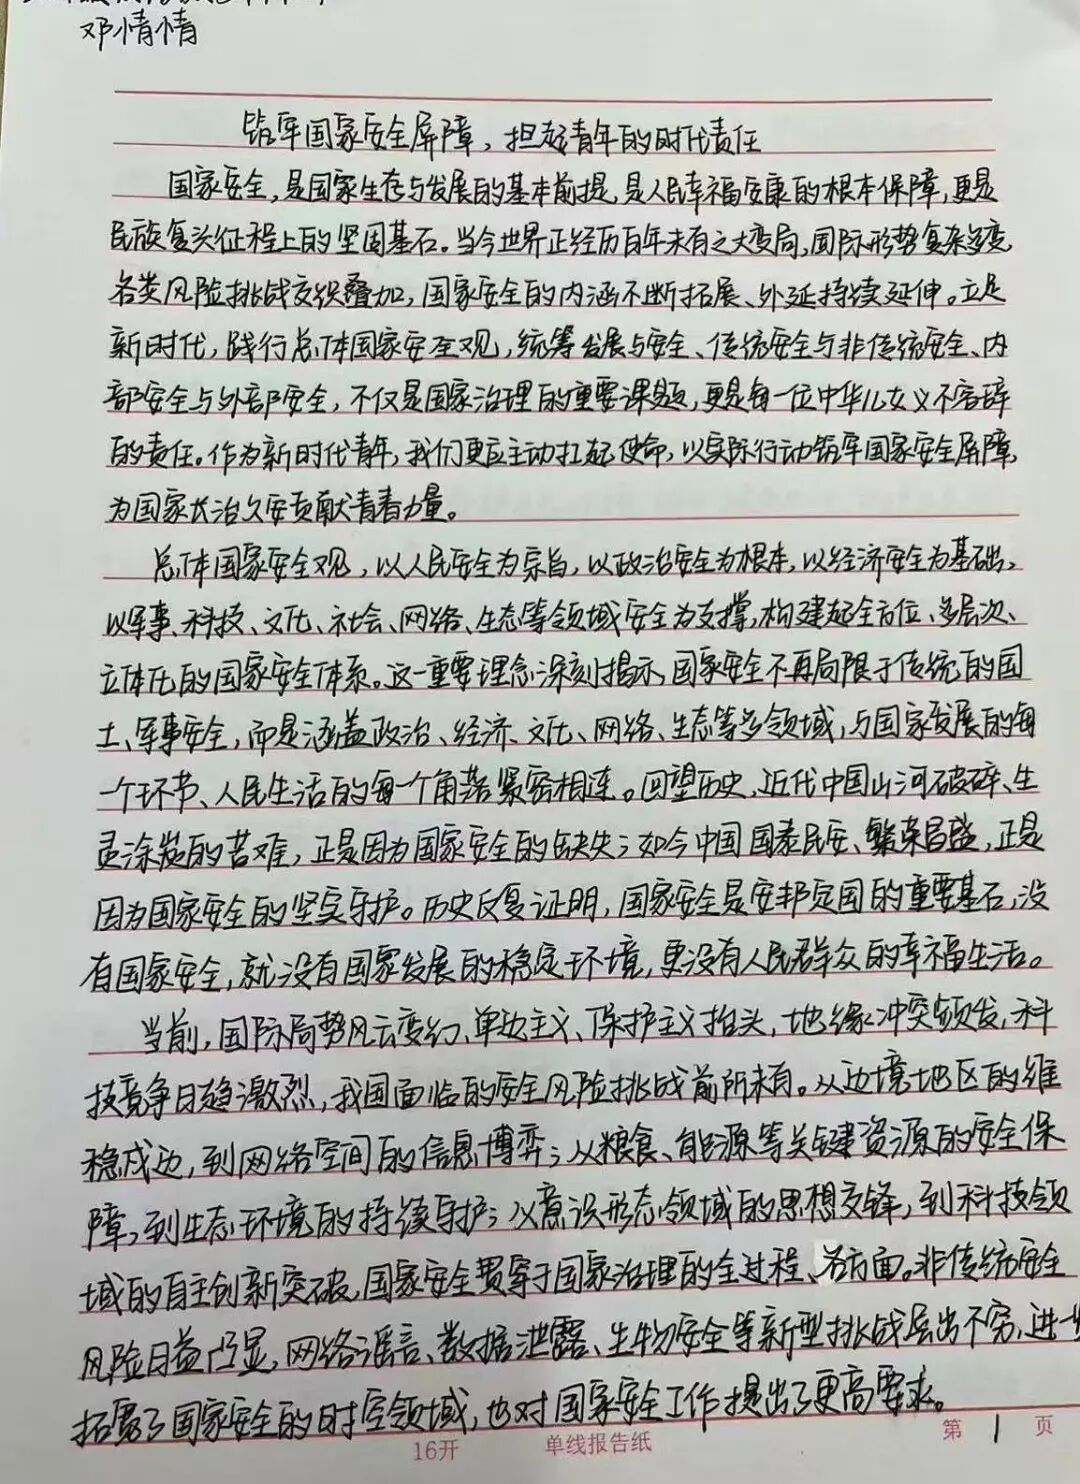 邓情情
筑牢国家安全屏障，担起青年的时代责任
国家安全，是国家生存与发展的基本前提，是人民幸福安康的根本保障，更是
民族复兴征程上的坚固基石。当今世界正经历百年未有之大变局，国际形势复杂多变，
各类风险挑战交织叠加，国家安全的内涵不断拓展、外延持续延伸。立足
新时代，践行总体国家安全观，统筹发展与安全、传统安全与非传统安全、内
部安全与外部安全，不仅是国家治理的重要课题，更是每一位中华儿女义不容辞
的责任。作为新时代青年，我们更应主动扛起使命，以实际行动筑牢国家安全屏障，
为国家长治久安贡献青春力量。
总体国家安全观，以人民安全为宗旨，以政治安全为根本，以经济安全为基础，
以军事、科技、文化、社会、网络、生态等领域安全为支撑，构建起全方位、多层次、
立体化的国家安全体系。这一重要理念深刻揭示，国家安全不再局限于传统的国
土、军事安全，而是涵盖政治、经济、文化、网络、生态等多领域，与国家发展的每
一个环节、人民生活的每一个角落紧密相连。回望历史，近代中国山河破碎、生
灵涂炭的苦难，正是因为国家安全的缺失；如今中国国泰民安、繁荣昌盛，正是
因为国家安全的坚实守护。历史反复证明，国家安全是安邦定国的重要基石，没
有国家安全，就没有国家发展的稳定环境，更没有人民群众的幸福生活。
当前，国际局势风云变幻、单边主义、保护主义抬头，地缘冲突频发，科
技竞争日趋激烈，我国面临的安全风险挑战前所未有。从边境地区的维
稳戍边，到网络空间的信息博弈；从粮食、能源等关键资源的安全保
障，到生态环境的持续守护；从意识形态领域的思想交锋，到科技领
域的自主创新突破，国家安全贯穿于国家治理的全过程、各方面。非传统安全
风险日益凸显，网络谣言、数据泄露、生物安全等新型挑战层出不穷，进一步
拓宽了国家安全的时空领域，也对国家安全工作提出了更高要求。
16开 单线报告纸 第 1 页